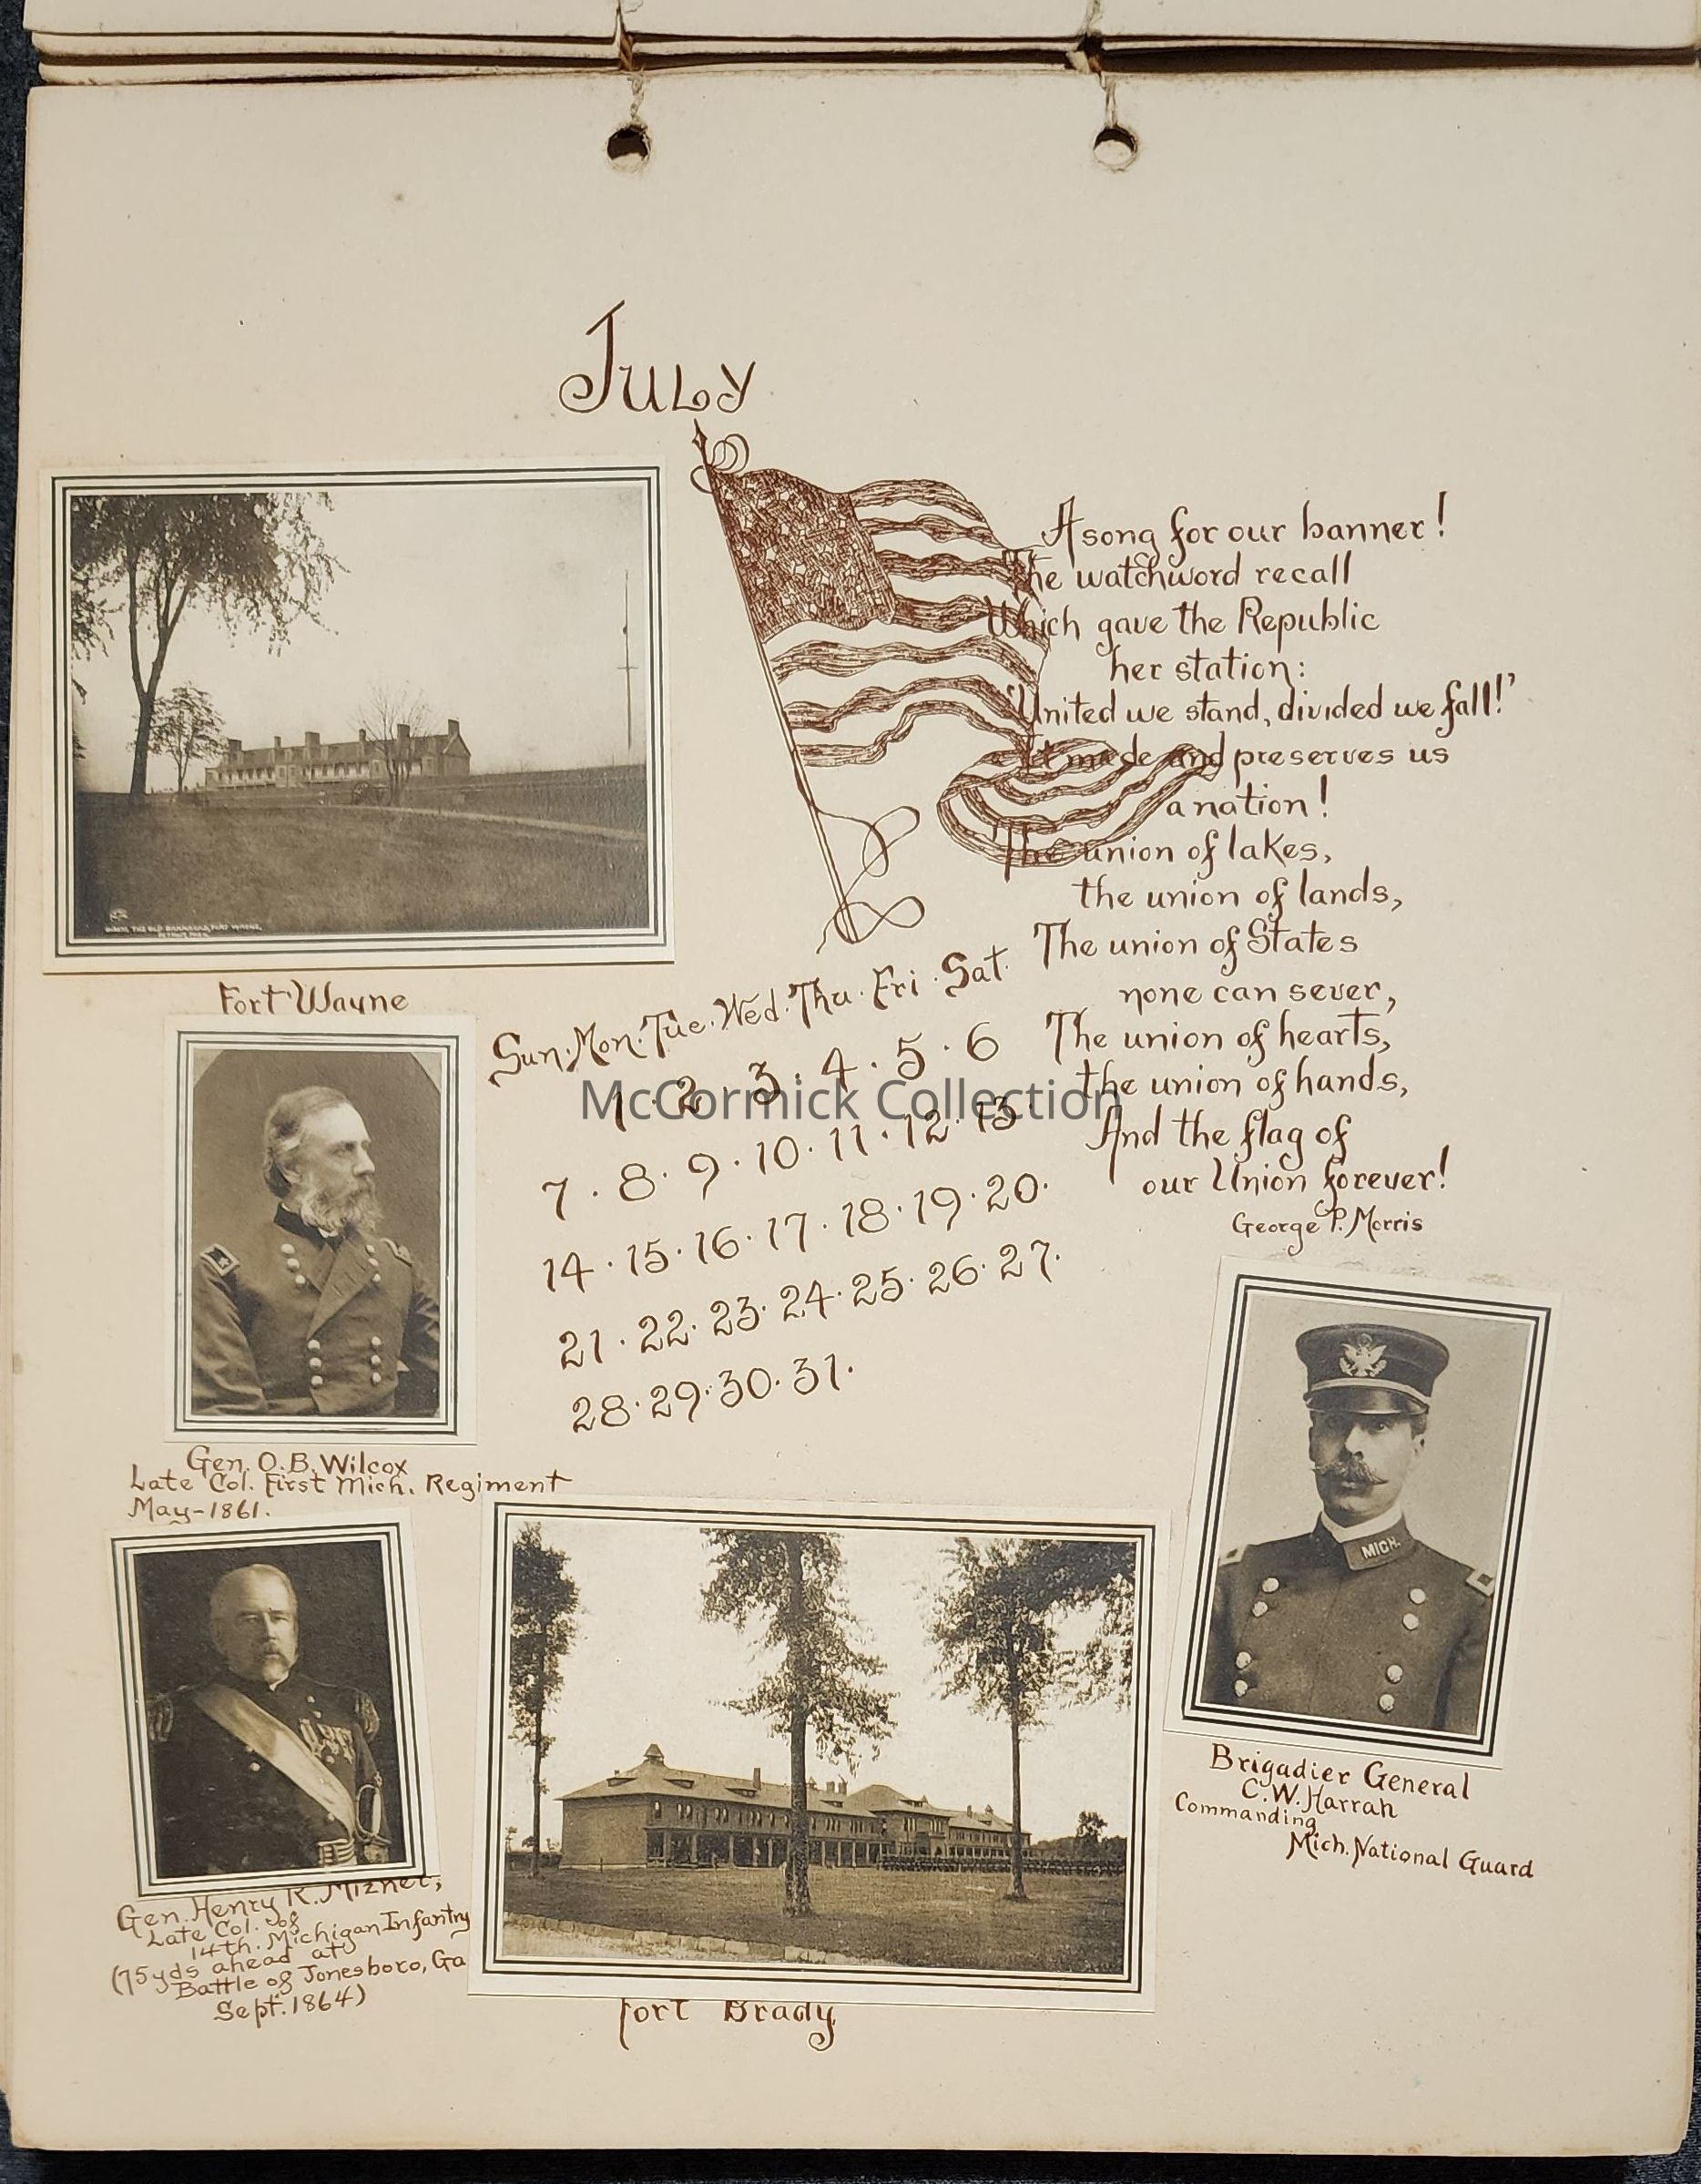 July
A song for our banner!
The watchword recall
Which gave the Republic
her station:
'United we stand, divided we fall!'
It made and preserves us
a nation!
The union of lakes,
the union of lands,
The union of States
none can sever,
The union of hearts,
the union of hands,
And the flag of
our Union forever!
George P. Morris
THE OLD BARRACKS, FORT WAYNE,
DETROIT, MICH.
Fort Wayne
Sun. Mon. Tue. Wed. Thu. Fri. Sat.
1 . 2 . 3 . 4 . 5 . 6
7 . 8 . 9 . 10 . 11 . 12 . 13 .
14 . 15 . 16 . 17 . 18 . 19 . 20 .
21 . 22 . 23 . 24 . 25 . 26 . 27 .
28 . 29 . 30 . 31 .
McCormick Collection
Gen. O.B. Wilcox
Late Col. First Mich. Regiment
May-1861.
MICH.
Brigadier General
C.W. Harrah
Commanding
Mich. National Guard
Gen. Henry R. Mizner,
Late Col. of
14th. Michigan Infantry
(75 yds ahead at
Battle of Jonesboro, Ga
Sept. 1864)
Fort Brady